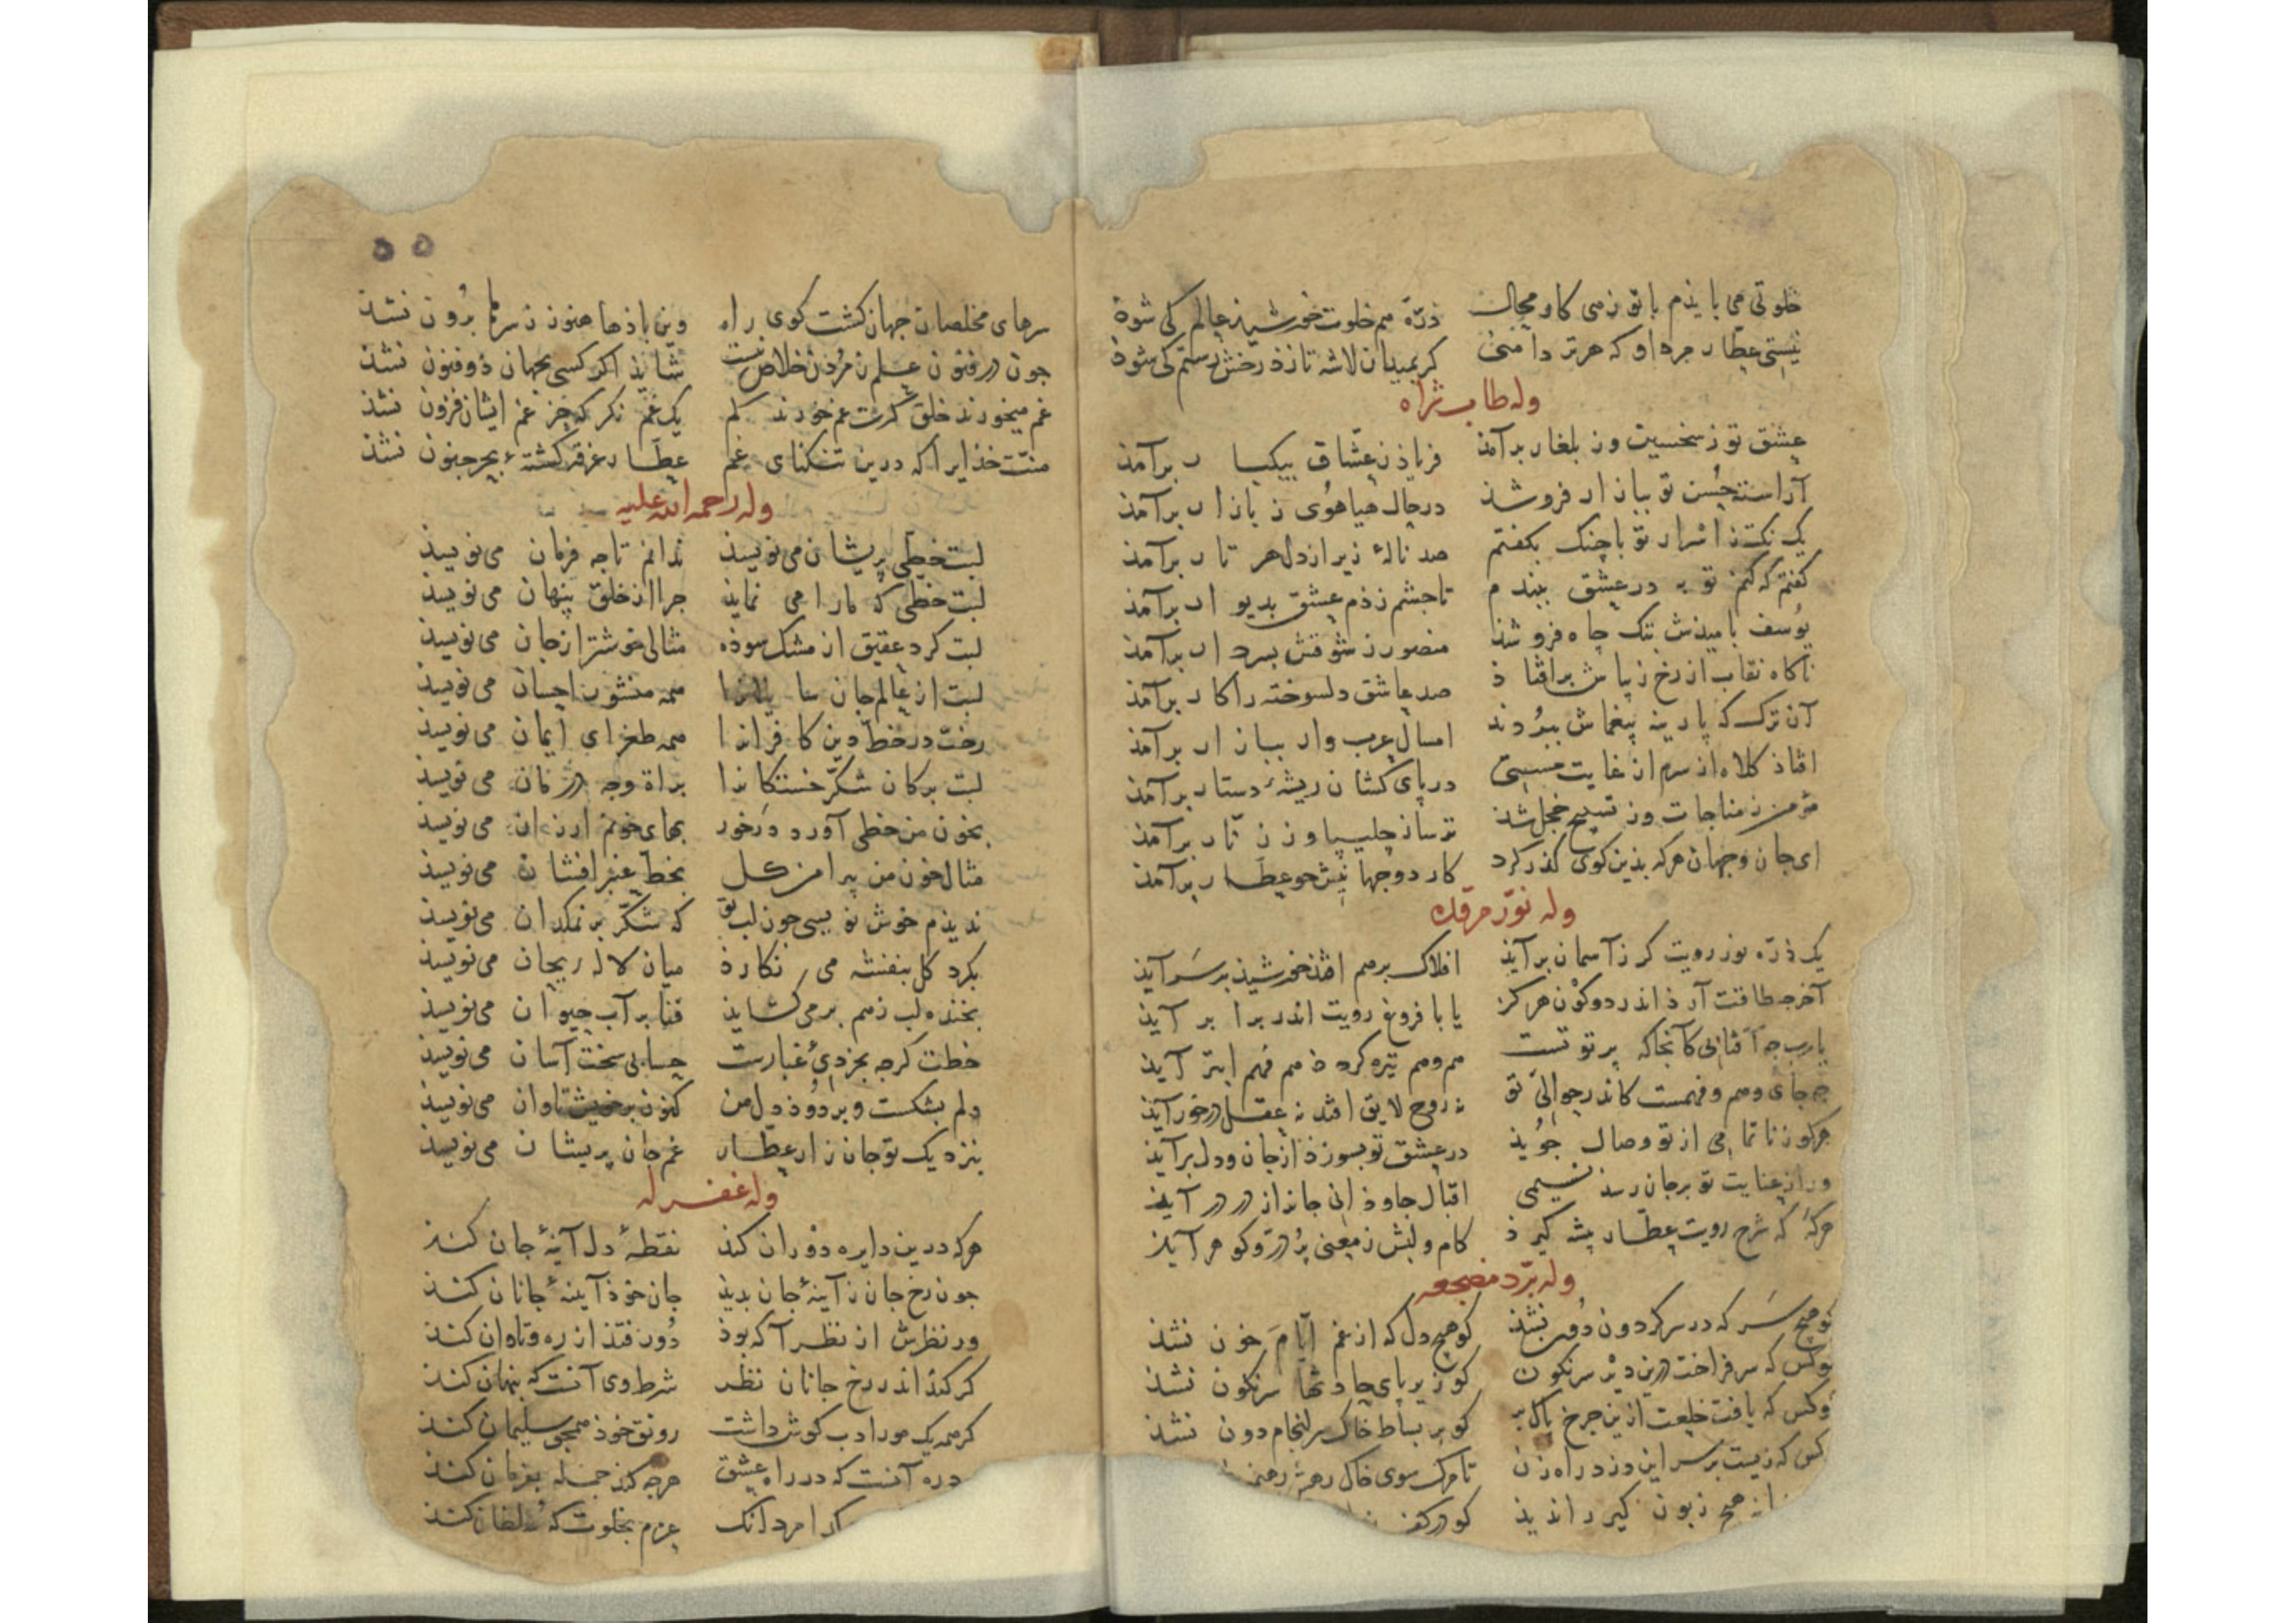 خلوتی می بایذم با تو زهی کار و محال
ذرّهٔ هم خلوت خورشید عالم کی شوذ
نیستی عطار مرد او که هر تر دامنی
گر بمیدان لاشه تازذ رخش رستم کی شوذ
وله طاب ثراه
عشق تو ز سقسین وز بلغار برآمذ
فریاذ ز عشّاق بیکبار برآمذ
آراسته حسن تو ببازار فرو شذ
در حال هیاهوی ز بازار برآمذ
یک نکته ز اسرار تو با چنگ بگفتم
صد نالهٔ زیر از دل هر تار برآمذ
گفتم که کنم توبه در عشق ببندم
تا چشم زذم عشق بدیوار برآمذ
یوسف بامیذش بتک چاه فرو شذ
منصور ز شوقش بسر دار برآمذ
ناگاه نقاب از رخ زیباش برافتاذ
صد عاشق دلسوخته را کار برآمذ
آن ترک که پارینه بیغماش ببردند
امسال عرب وار ببازار برآمذ
افتاذ کلاه از سرم از غایت مستی
در پای کشان ریشهٔ دستار برآمذ
مؤمن ز مناجات وز تسبیح خجل شذ
ترسا ز چلیپا وز زنّار برآمذ
ای جان و جهان هرکه بذین کوی گذر کرد
کار دو جهانیش چو عطّار برآمذ
وله نوّر مرقده
یک ذرّه نور رویت گر ز آسمان برآیذ
افلاک برهم افتذ خورشیذ بر سر آیذ
آخر چه طاقت آرذ اندر دو کون هرگز
یا با فروغ رویت اندر برابر آیذ
یارب چه آفتابی کآنجا که پرتو تست
هم وهم تیره گردذ هم فهم ابتر آیذ
چه جای وهم و فهمست کاندر حوالی تو
نه روح لایق افتد نه عقل درخور آیذ
هرکو ز ناتمامی از تو وصال جویذ
در عشق تو بسوزذ از جان و دل برآیذ
ور از عنایت تو بر جان رسذ نسیمی
اقبال جاوذانی جانرا ز در درآیذ
هرگه که شرح رویت عطّار پیشه گیرذ
کام و لبش ز معنی پر درّ و گوهر آیذ
وله برّد مضجعه
کو هیچ سر که در سر گردون دون نشذ
کو هیچ دل که از غم ایّام خون نشذ
کو کس که سر فراخت درین دیر سرنگون
کو زیر پای حادثها سرنگون نشذ
کو کس که یافت خلعت ازین چرخ پاک بر
کو بر بساط خاک سرانجام دون نشذ
کس که زیست بر سر این دزد راه زن
تا مرگ سوی خاک
هیچ زبون گیر را ندیذ
کو در کف
۵۵
سرهای مخلصان جهان گشت گوی راه
وین باذها هنوز ز سرها برون نشذ
چون در فنون علم ز مردن خلاص نیست
شایذ اگر کسی بجهان ذوفنون نشذ
غم میخورند خلق گرت غم خورند کم
یک غم نگر که جز غم ایشان فزون نشذ
منّت خذایرا که درین تنگنای غم
عطّار غرقه گشتهٔ بحر جنون نشذ
وله رحمه الله علیه
لبت خطّی پریشان می نویسذ
ندانم تا چه فرمان می نویسذ
لبت خطّی که مارا می نمایذ
چرا از خلق پنهان می نویسذ
لبت گرد عقیق از مشک سوذه
مثالی خوشتر از جان می نویسذ
لبت از عالم جان
همه منشور احسان می نویسذ
رخت در خطّ دین کافرانرا
همه طغرای ایمان می نویسذ
لبت بر کان شکّر خستگانرا
براة وجه درمان می نویسذ
بخون من خطی آورد درخور
بهای خونم ارزان می نویسذ
مثال خون من پیرامن گل
بخطّ عنبر افشان می نویسذ
ندیذم خوش نویسی چون لب تو
که شکّر بر نمکدان می نویسذ
بگرد گل بنفشه می نگارذ
میان لاله ریحان می نویسذ
بخنده لب ز هم بر می گشایذ
فنا بر آب حیوان می نویسذ
خطت گرچه بجز دی غبارست
حسابی سخت آسان می نویسذ
دلم بشکست و برد و ذ دل من
کنون بر خویش تاوان می نویسذ
بنزدیک تو جان زار عطّار
غم جان پریشان می نویسذ
وله غفر له
هرکه درین دایره دوران کنذ
نقطهٔ دل آینهٔ جان کنذ
چون رخ جان ز آینهٔ جان بدیذ
جان خوذ آینهٔ جانان کنذ
ور نظرش از نظر آگه بوذ
دور فتذ از ره و تاوان کنذ
گر کنذ اندر رخ جانان نظر
شرط وی آنست که پنهان کنذ
گر همه یک مور ادب گوش داشت
رونق خوذ همچو سلیمان کنذ
آنست که در راه عشق
هرچه کنذ جمله بفرمان کنذ
مرد آنک
عزم بخلوت گه سلطان کنذ